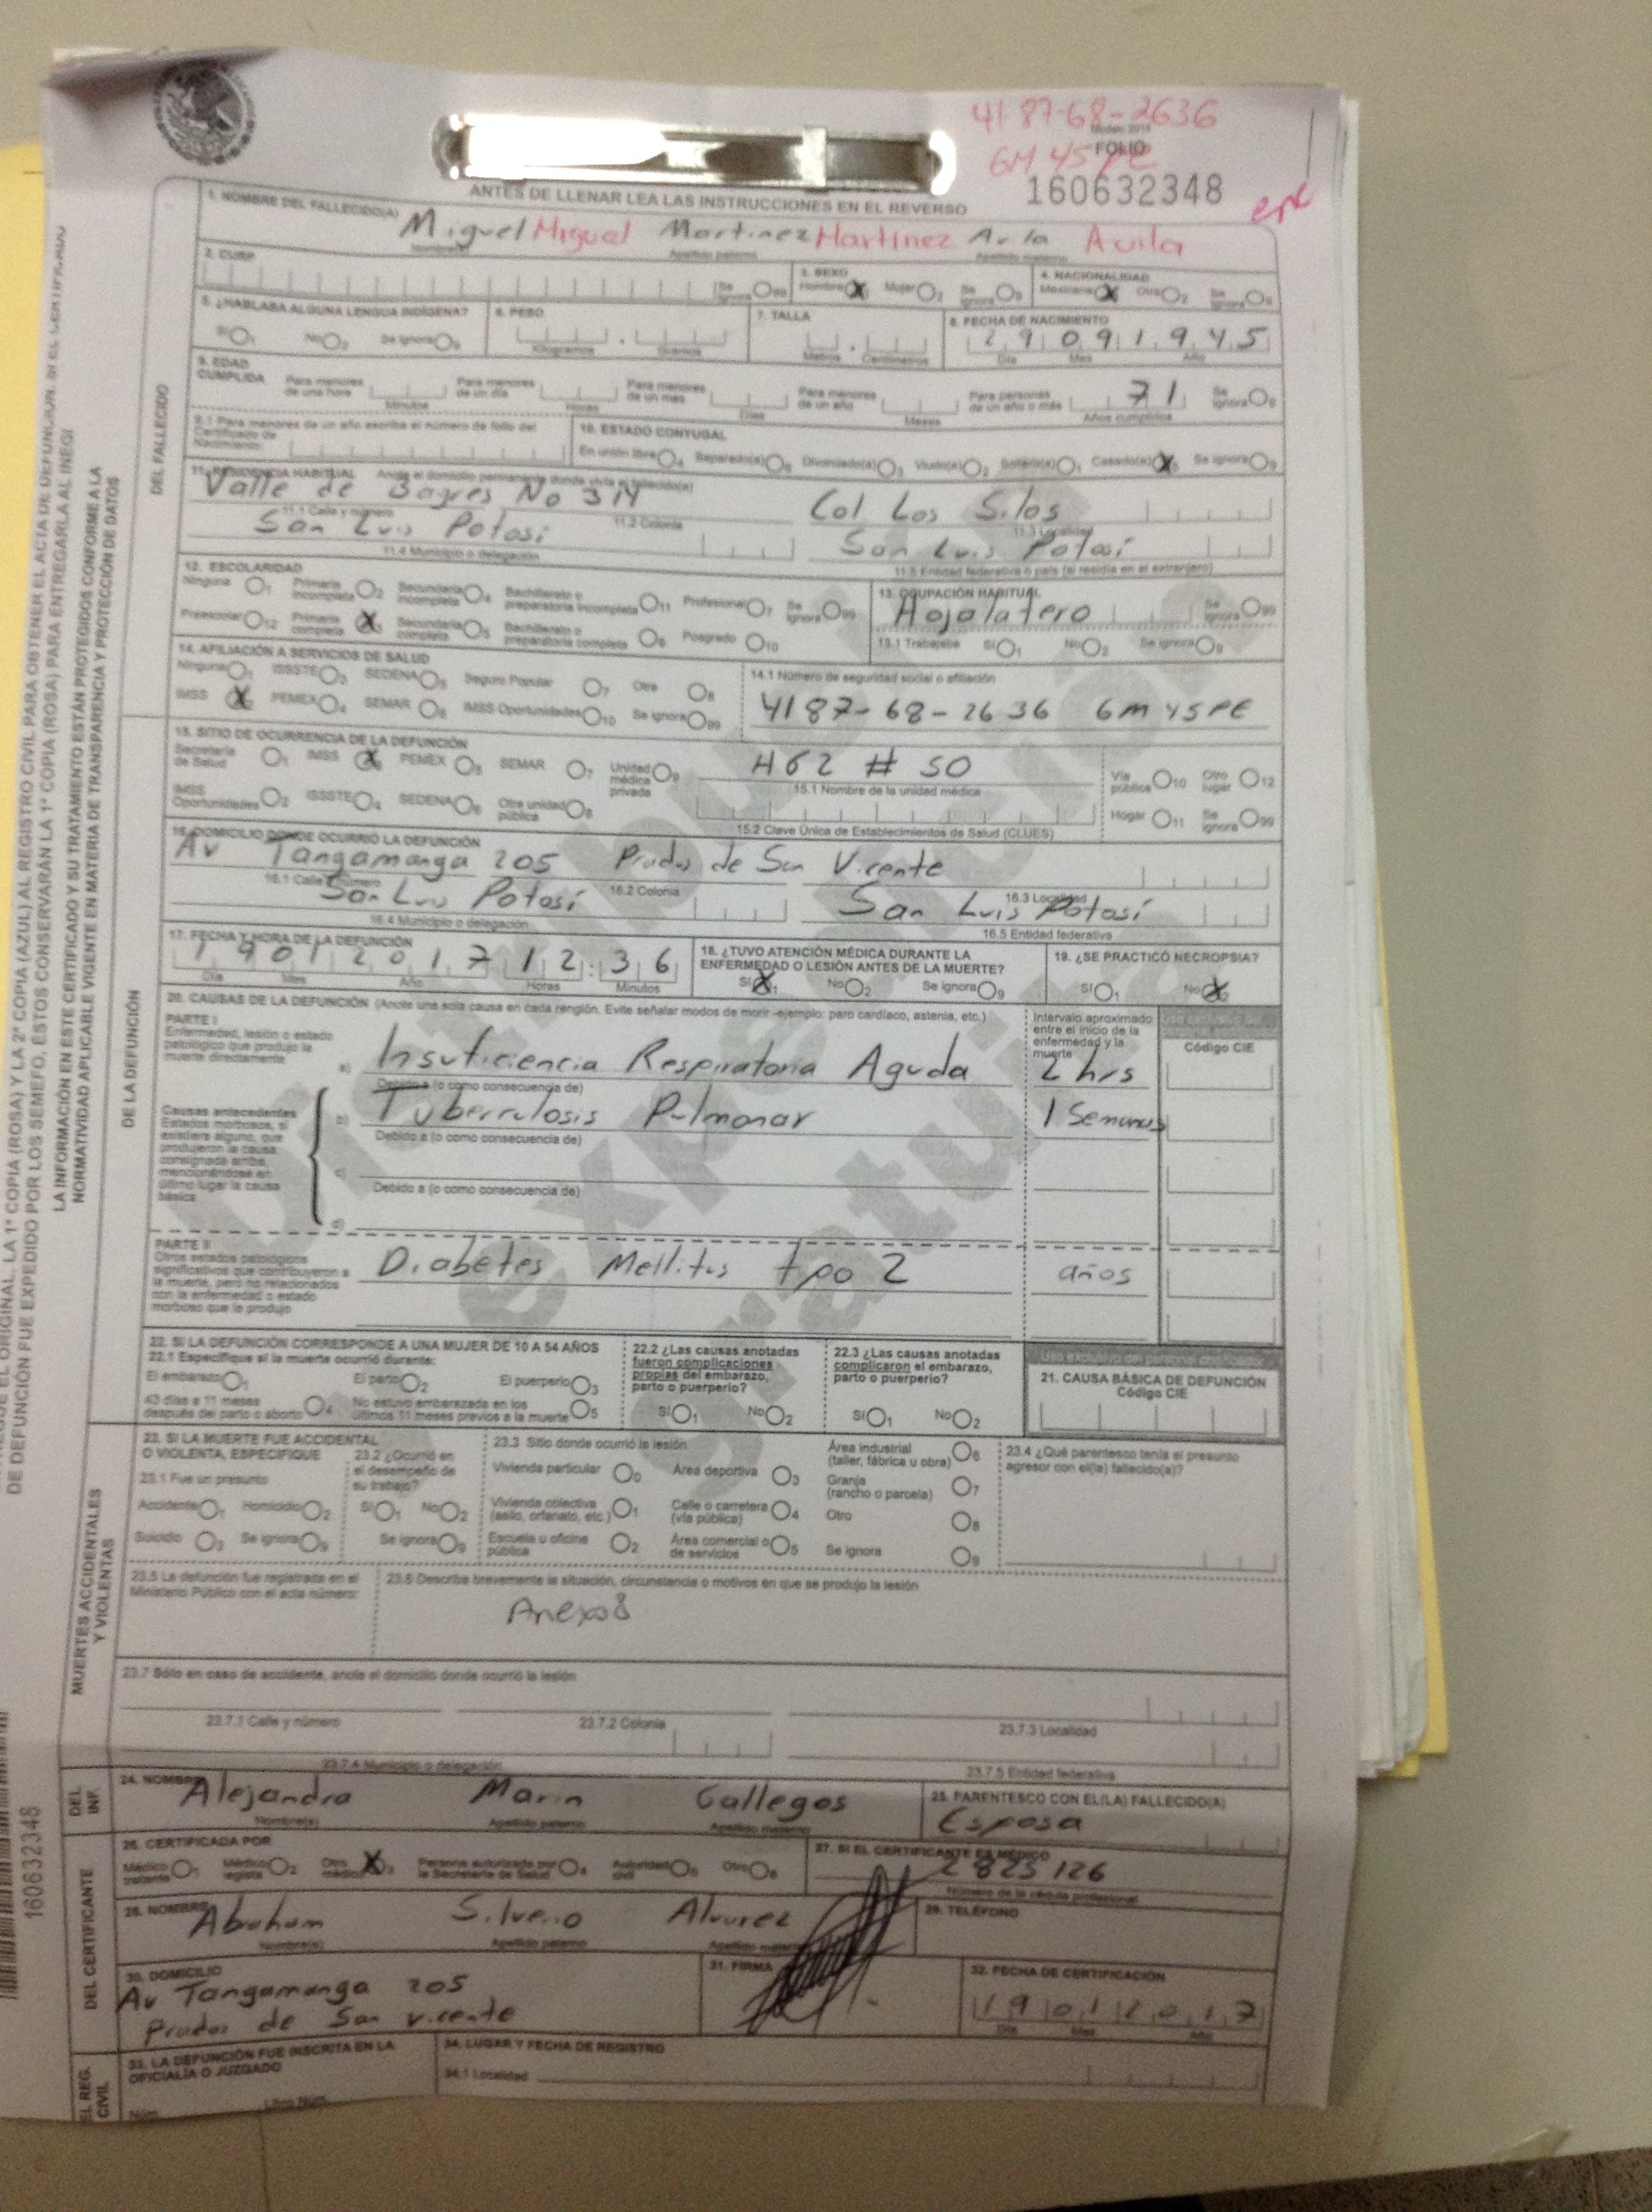 41 87-68-2636
Modelo 2016
6M 45 PE
FOLIO
160632348
ANTES DE LLENAR LEA LAS INSTRUCCIONES EN EL REVERSO
1. NOMBRE DEL FALLECIDO(A) Miguel Miguel Martinez Martinez Avila Avila
Nombre(s) Apellido paterno Apellido materno
2. CURP Se ignora 99 3. SEXO Hombre 1 Mujer 2 Se ignora 9 4. NACIONALIDAD Mexicana 1 Otra 2 Se ignora 9
5. ¿HABLABA ALGUNA LENGUA INDÍGENA? Sí 1 No 2 Se ignora 9 6. PESO Kilogramos Gramos 7. TALLA Metros Centímetros 8. FECHA DE NACIMIENTO 29 09 1945 Día Mes Año
9. EDAD CUMPLIDA Para menores de una hora Minutos Para menores de un día Horas Para menores de un mes Días Para menores de un año Meses Para personas de un año o más 71 Años cumplidos Se ignora 9
9.1 Para menores de un año escriba el número de folio del Certificado de Nacimiento: 10. ESTADO CONYUGAL En unión libre 4 Separado(a) 6 Divorciado(a) 3 Viudo(a) 2 Soltero(a) 1 Casado(a) 5 Se ignora 9
11. RESIDENCIA HABITUAL Anote el domicilio permanente donde vivía el fallecido(a)
Valle de Bagres No 314 Col Los Silos
11.1 Calle y número 11.2 Colonia 11.3 Localidad
San Luis Potosí San Luis Potosí
11.4 Municipio o delegación 11.5 Entidad federativa o país (si residía en el extranjero)
12. ESCOLARIDAD
Ninguna 1 Primaria incompleta 2 Secundaria incompleta 4 Bachillerato o preparatoria incompleta 11 Profesional 7 Se ignora 99
Preescolar 12 Primaria completa 3 Secundaria completa 5 Bachillerato o preparatoria completa 6 Posgrado 10
13. OCUPACIÓN HABITUAL Hojalatero Se ignora 99
13.1 Trabajaba Sí 1 No 2 Se ignora 9
14. AFILIACIÓN A SERVICIOS DE SALUD
Ninguna 1 ISSSTE 3 SEDENA 5 Seguro Popular 7 Otra 8
IMSS PEMEX 4 SEMAR 6 IMSS Oportunidades 10 Se ignora 99
14.1 Número de seguridad social o afiliación
4187-68-2636 6M45PE
15. SITIO DE OCURRENCIA DE LA DEFUNCIÓN
Secretaría de Salud 1 IMSS PEMEX 5 SEMAR 7 Unidad médica privada 9 HGZ # 50 Vía pública 10 Otro lugar 12
15.1 Nombre de la unidad médica
IMSS Oportunidades 2 ISSSTE 4 SEDENA 6 Otra unidad pública 8 Hogar 11 Se ignora 99
15.2 Clave Única de Establecimientos de Salud (CLUES)
16. DOMICILIO DONDE OCURRIÓ LA DEFUNCIÓN
Av Tangamanga 205 Prados de San Vicente
16.1 Calle y número 16.2 Colonia 16.3 Localidad
San Luis Potosí San Luis Potosí
16.4 Municipio o delegación 16.5 Entidad federativa
17. FECHA Y HORA DE LA DEFUNCIÓN 19 01 2017 12:36 Día Mes Año Horas Minutos
18. ¿TUVO ATENCIÓN MÉDICA DURANTE LA ENFERMEDAD O LESIÓN ANTES DE LA MUERTE? Sí 1 No 2 Se ignora 9
19. ¿SE PRACTICÓ NECROPSIA? Sí 1 No 2
20. CAUSAS DE LA DEFUNCIÓN (Anote una sola causa en cada renglón. Evite señalar modos de morir -ejemplo: paro cardíaco, astenia, etc.)
Intervalo aproximado entre el inicio de la enfermedad y la muerte
Código CIE
PARTE I
Enfermedad, lesión o estado patológico que produjo la muerte directamente
a) Insuficiencia Respiratoria Aguda 2 hrs
Debido a (o como consecuencia de)
Causas antecedentes
Estados morbosos, si existiera alguno, que produjeron la causa consignada arriba, mencionándose en último lugar la causa básica
b) Tuberculosis Pulmonar 1 Semanas
Debido a (o como consecuencia de)
c)
Debido a (o como consecuencia de)
d)
PARTE II
Otros estados patológicos significativos que contribuyeron a la muerte, pero no relacionados con la enfermedad o estado morboso que la produjo
Diabetes Mellitus tpo 2 años
22. SI LA DEFUNCIÓN CORRESPONDE A UNA MUJER DE 10 A 54 AÑOS
22.1 Especifique si la muerte ocurrió durante:
El embarazo 1 El parto 2 El puerperio 3
43 días a 11 meses después del parto o aborto 4 No estuvo embarazada en los últimos 11 meses previos a la muerte 5
22.2 ¿Las causas anotadas fueron complicaciones propias del embarazo, parto o puerperio? Sí 1 No 2
22.3 ¿Las causas anotadas complicaron el embarazo, parto o puerperio? Sí 1 No 2
21. CAUSA BÁSICA DE DEFUNCIÓN
Código CIE
23. SI LA MUERTE FUE ACCIDENTAL O VIOLENTA, ESPECIFIQUE
23.1 Fue un presunto
Accidente 1 Homicidio 2
Suicidio 3 Se ignora 9
23.2 ¿Ocurrió en el desempeño de su trabajo?
Sí 1 No 2
Se ignora 9
23.3 Sitio donde ocurrió la lesión
Vivienda particular 0 Área deportiva 3 Área industrial (taller, fábrica u obra) 6
Vivienda colectiva (asilo, orfanato, etc.) 1 Calle o carretera (vía pública) 4 Granja (rancho o parcela) 7
Escuela u oficina pública 2 Área comercial o de servicios 5 Otro 8
Se ignora 9
23.4 ¿Qué parentesco tenía el presunto agresor con el(la) fallecido(a)?
23.5 La defunción fue registrada en el Ministerio Público con el acta número:
23.6 Describa brevemente la situación, circunstancia o motivos en que se produjo la lesión
Anexo8
23.7 Sólo en caso de accidente, anote el domicilio donde ocurrió la lesión
23.7.1 Calle y número 23.7.2 Colonia 23.7.3 Localidad
23.7.4 Municipio o delegación 23.7.5 Entidad federativa
24. NOMBRE Alejandra Marin Gallegos
Nombre(s) Apellido paterno Apellido materno
25. PARENTESCO CON EL(LA) FALLECIDO(A)
Esposa
26. CERTIFICADA POR
Médico tratante 1 Médico legista 2 Otro médico 3 Persona autorizada por la Secretaría de Salud 4 Autoridad civil 5 Otro 8
27. SI EL CERTIFICANTE ES MÉDICO
2825126
Número de la cédula profesional
28. NOMBRE Abraham Silverio Alvarez
Nombre(s) Apellido paterno Apellido materno
29. TELÉFONO
30. DOMICILIO
Av Tangamanga 205
Prados de San Vicente
31. FIRMA
32. FECHA DE CERTIFICACIÓN
19 01 2017
Día Mes Año
33. LA DEFUNCIÓN FUE INSCRITA EN LA OFICIALÍA O JUZGADO
Núm. Libro Núm.
34. LUGAR Y FECHA DE REGISTRO
34.1 Localidad
DEL FALLECIDO
DE LA DEFUNCIÓN
MUERTES ACCIDENTALES Y VIOLENTAS
DEL INF.
DEL CERTIFICANTE
EL REG. CIVIL
LA INFORMACIÓN EN ESTE CERTIFICADO Y SU TRATAMIENTO ESTÁN PROTEGIDOS CONFORME A LA
NORMATIVIDAD APLICABLE VIGENTE EN MATERIA DE TRANSPARENCIA Y PROTECCIÓN DE DATOS
160632348
Distribución y expedición gratuita